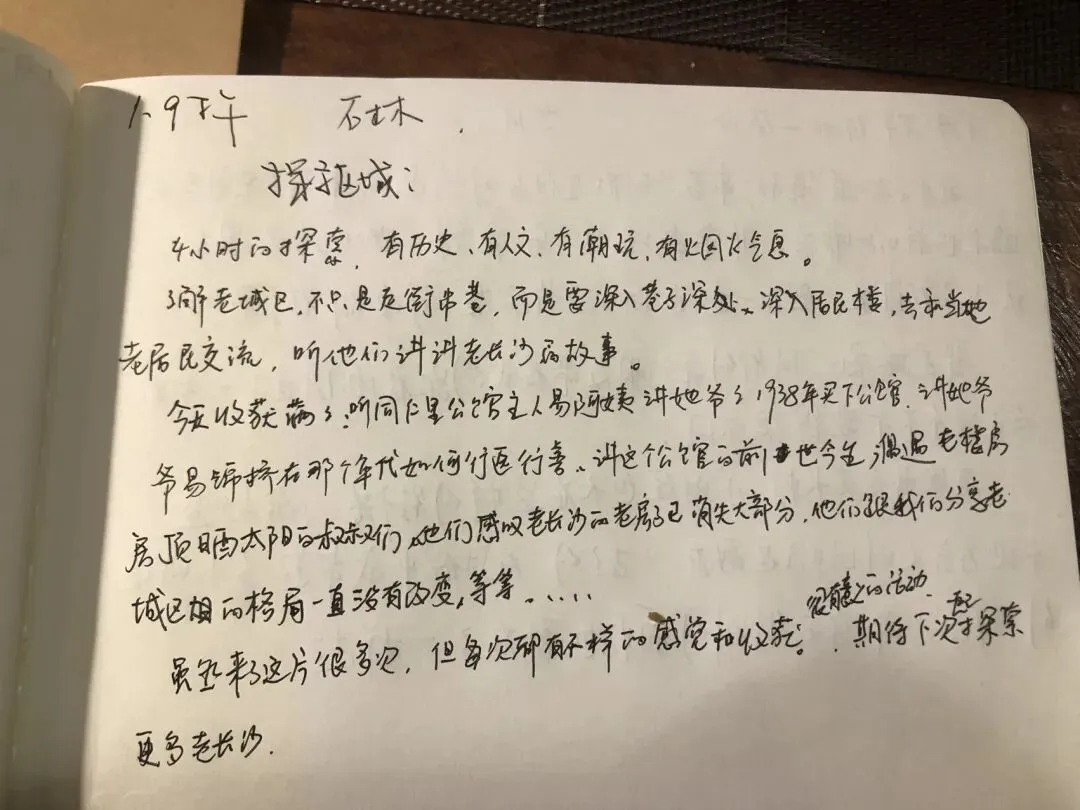 1.9下午 石土木.
探区域:
4小时的探索,有历史、有人文、有潮玩,有烟火气息。
了解老城区,不只是走街串巷,而是要深入巷子深处、深入居民楼,去和当地
老居民交流,听他们讲讲老长沙的故事。
今天收获满了,听同仁里公馆主人易阿姨讲她爷爷1938年买下公馆、讲她爷
爷易锦桥在那个年代如何行医行善、讲这个公馆的前世今生,偶遇老楼房
房顶晒太阳的叔叔们,他们感叹老长沙的老房子已消失大部分,他们跟我们分享老
城区的格局一直没有改变,等等.....
很有意义的活动.
虽然来了这片很多次,但每次都有不一样的感觉和收获。期待下次再探索
更多老长沙.